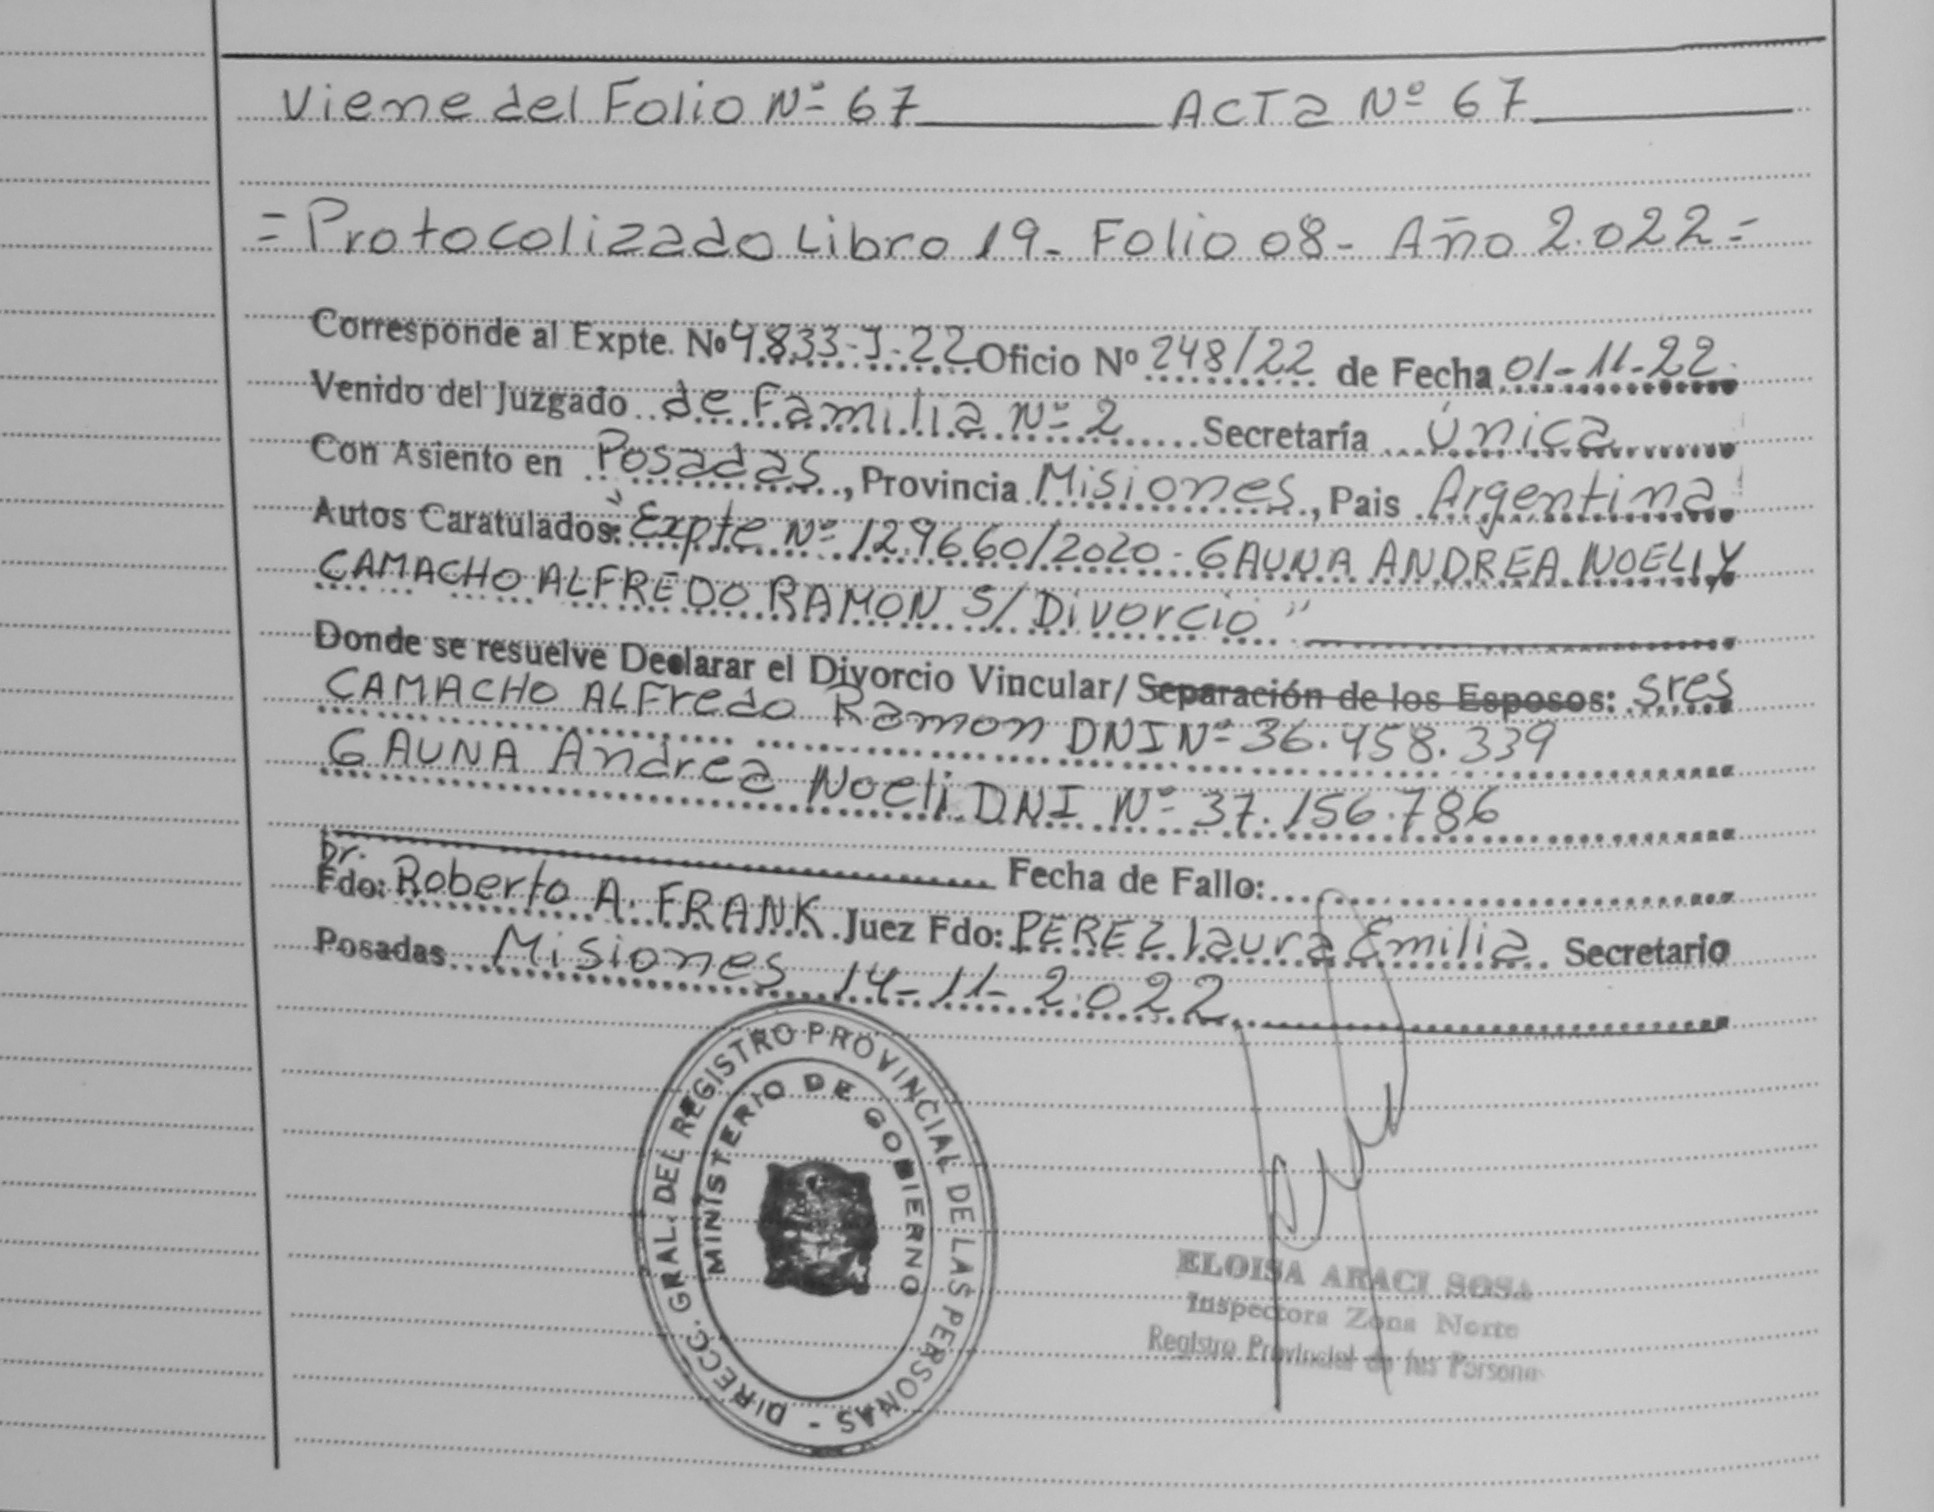 Viene del Folio Nº 67 ACTa Nº 67
= Protocolizado Libro 19- Folio 08- Año 2.022=
Corresponde al Expte. Nº 4833-J-22 Oficio Nº 248/22 de Fecha 01-11-22
Venido del Juzgado de Familia Nº 2 Secretaría única
Con Asiento en Posadas, Provincia Misiones, Pais Argentina
Autos Caratulados: "Expte Nº 129660/2020- GAUNA ANDREA NOELI Y
CAMACHO ALFREDO RAMON S/Divorcio"
Donde se resuelve Declarar el Divorcio Vincular/ Separación de los Esposos: sres
CAMACHO ALFredo Ramon DNI Nº 36.458.339
GAUNA Andrea Noeli DNI Nº 37.156.786
Fecha de Fallo:
Dr.
Fdo: Roberto A. FRANK Juez Fdo: PEREZ laura Emilia Secretario
Posadas Misiones 14-11-2.022
DIRECC. GRAL. DEL REGISTRO PROVINCIAL DE LAS PERSONAS -
MINISTERIO DE GOBIERNO
ELOISA ARACI SOSA
Inspectora Zona Norte
Registro Provincial de las Personas